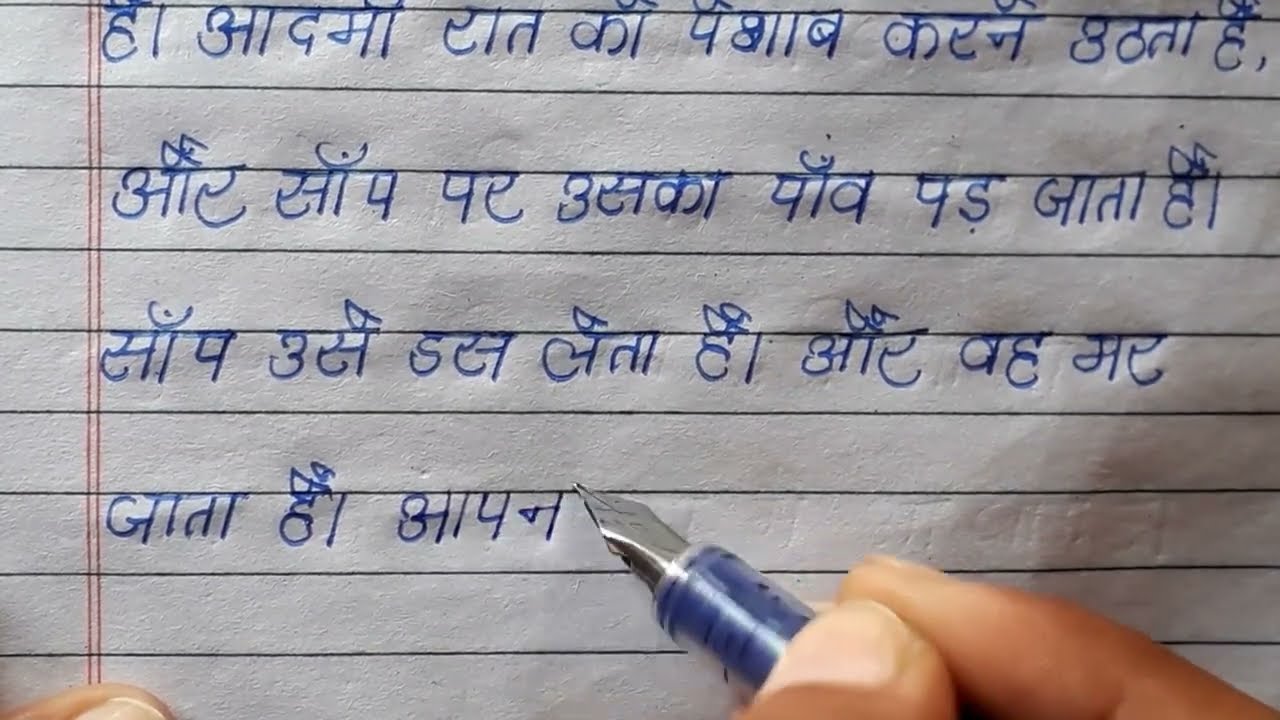 है। आदमी रात को पेशाब करने उठता है,
और साँप पर उसका पाँव पड़ जाता है।
साँप उसे डस लेता है। और वह मर
जाता है। आपन